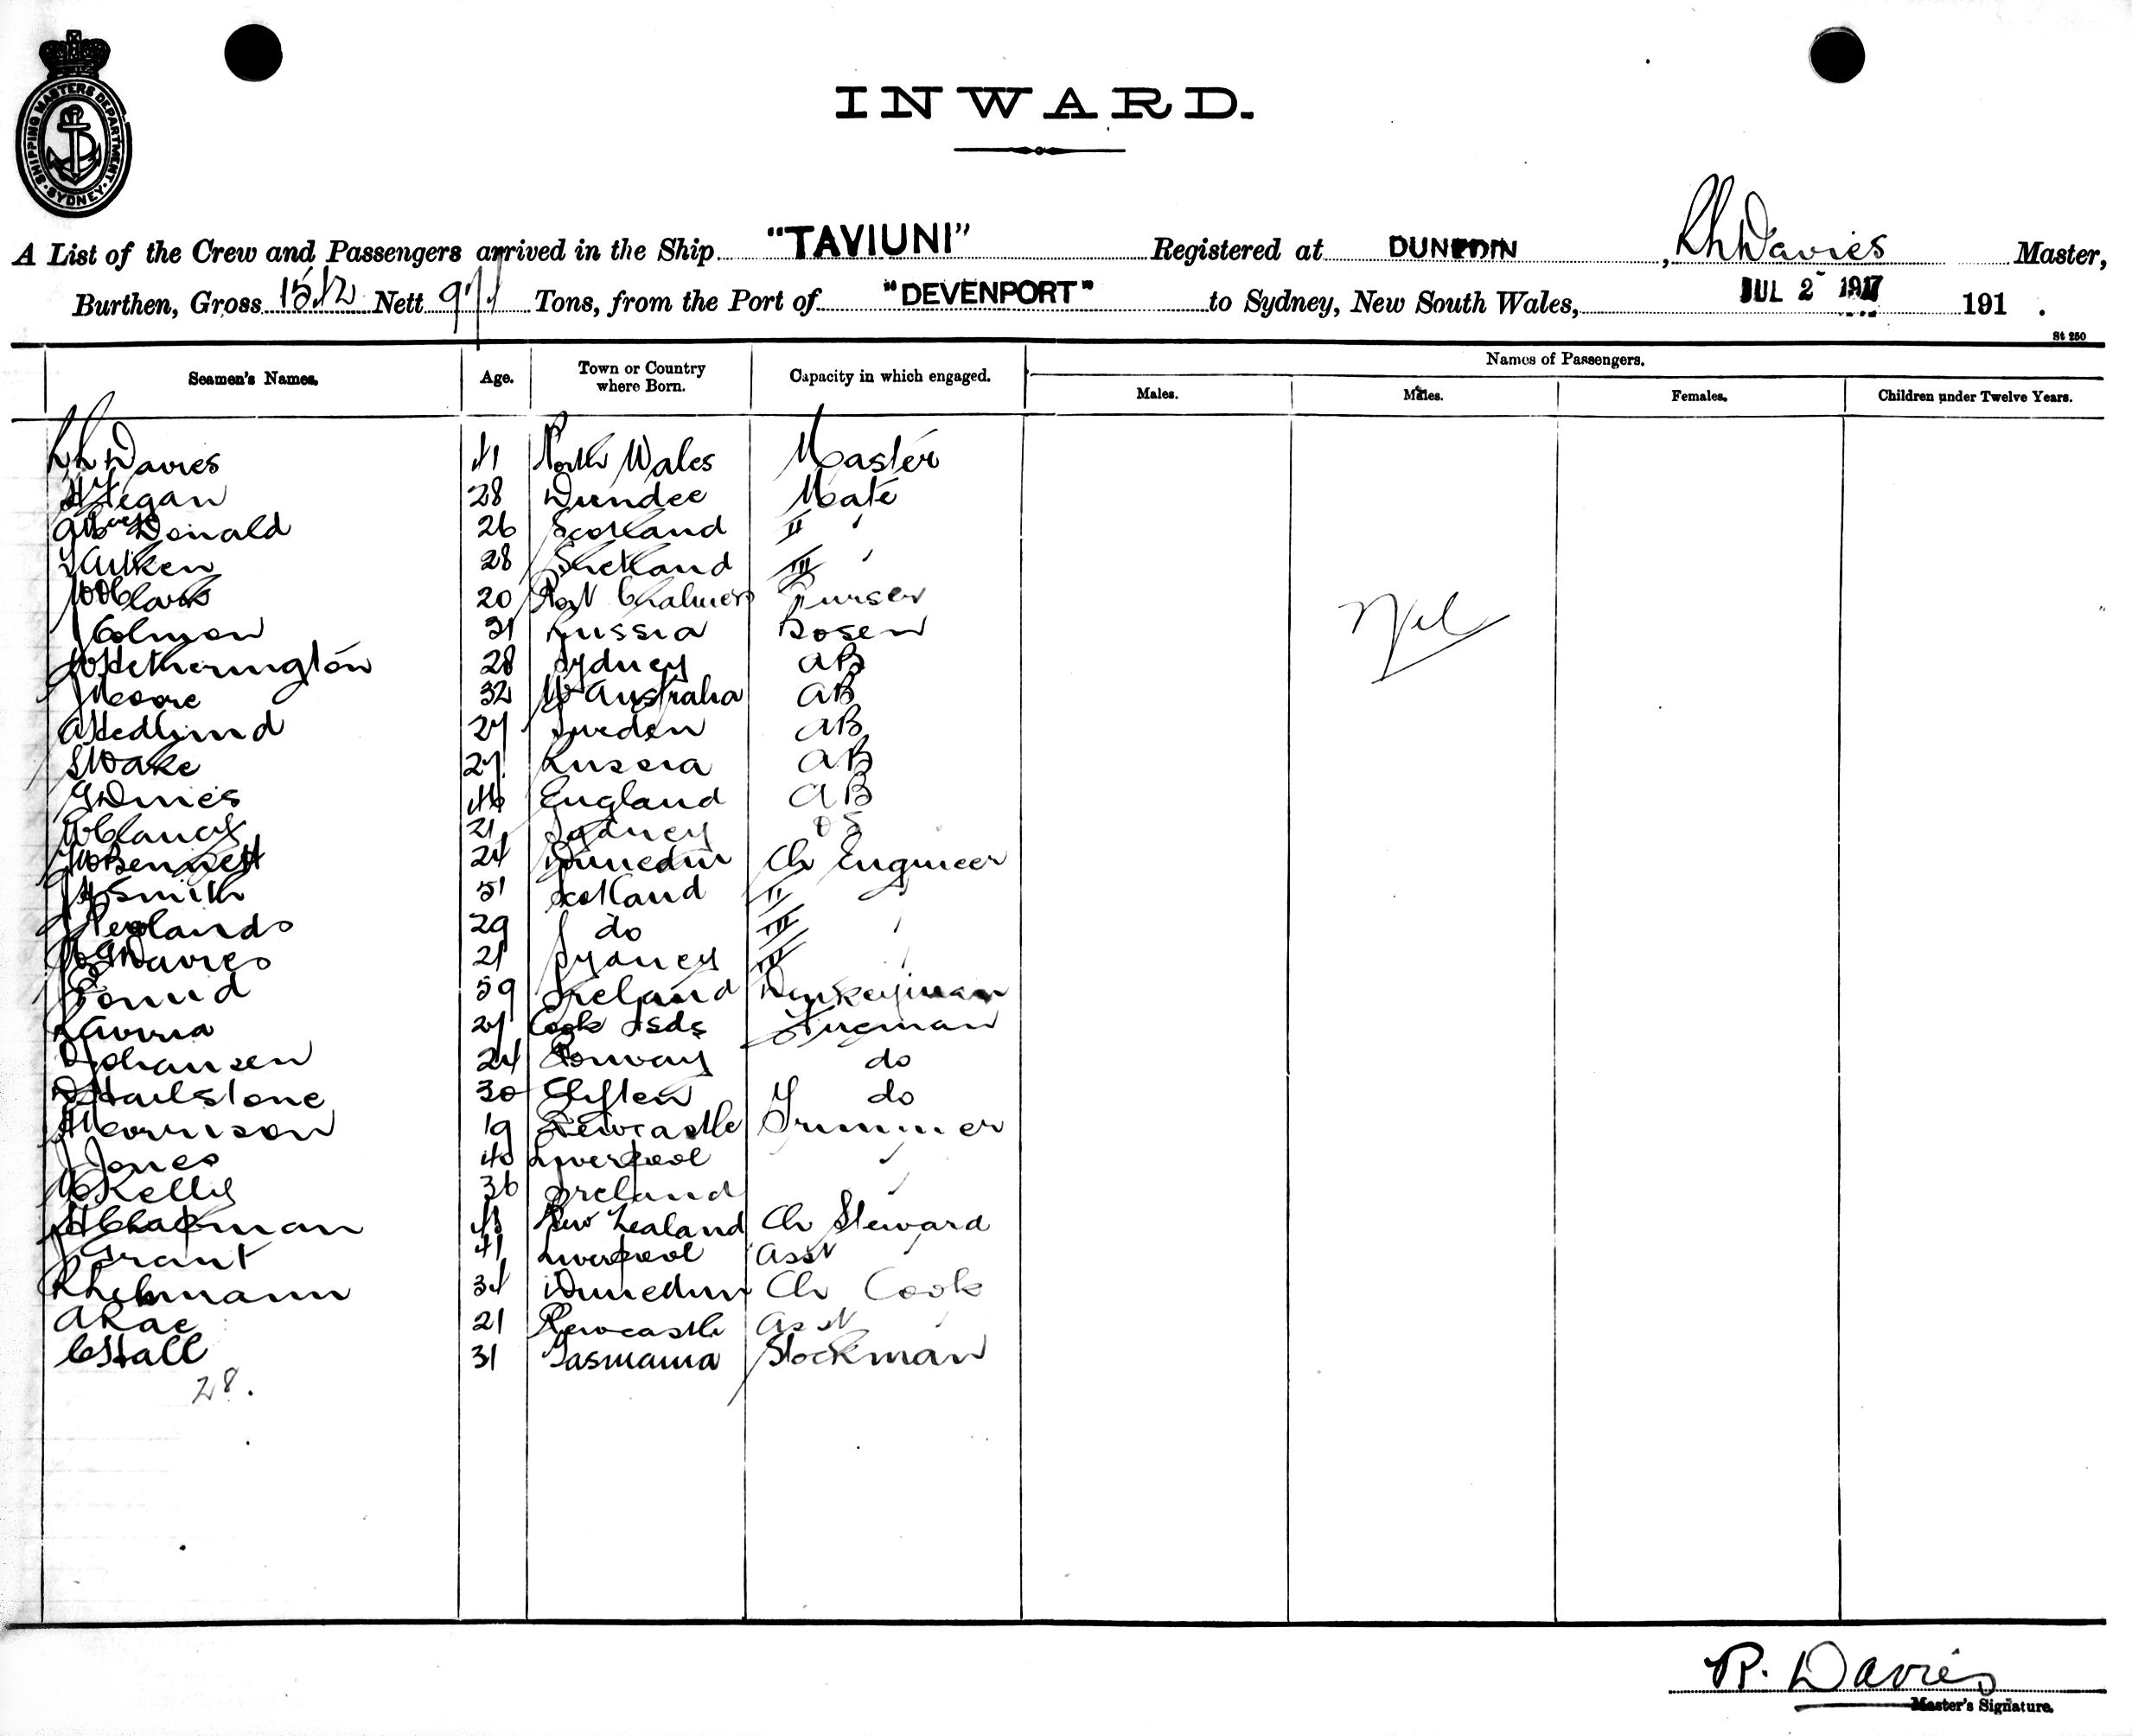 SHIPPING MASTERS DEPARTMENT · SYDNEY ·
INWARD.
A List of the Crew and Passengers arrived in the Ship "TAVIUNI" Registered at DUNEDIN, Davies Master,
Burthen, Gross 1512 Nett Tons, from the Port of "DEVENPORT" to Sydney, New South Wales, JUL 2 1917 191 .
St 250
Seamen's Names. Age. Town or Country where Born. Capacity in which engaged. Names of Passengers.
Males. Males. Females. Children under Twelve Years.
Davies 41 North Wales Master
28 Dundee Mate
Donald 26 Scotland II "
Aitken 28 Shetland III "
Clark 20 Port Chalmers Purser
31 Russia Bosen
Nil
Hetherington 28 Sydney AB
J Moore 32 W Australia AB
A Hedlund 27 Sweden AB
S Wake 27 Russia AB
46 England AB
W Clancy 21 Sydney OS
Bennett 24 Dunedin Ch Engineer
Smith 51 Scotland II
Newlands 29 do III "
Davies 21 Sydney IV "
59 Ireland Donkeyman
27 Cook Isds Fireman
Johansen 24 Norway do
Hailstone 30 Clifton do
Morrison 19 Newcastle Trimmer
J Jones 40 Liverpool "
Kelly 36 Ireland "
H Chapman New Zealand Ch Steward
Grant 41 Liverpool Asst "
34 Dunedin Ch Cook
A Rae 21 Newcastle Asst "
C Hall 31 Tasmania Stockman
28.
R. Davies
Master's Signature.